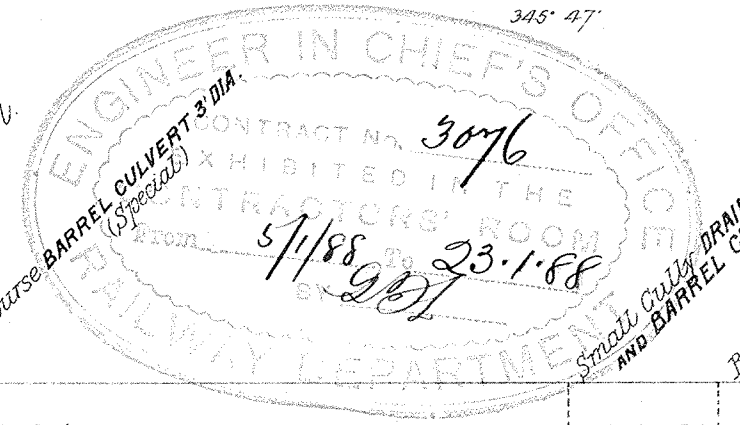 345° 47'
ENGINEER IN CHIEF'S OFFICE
CONTRACT No. 3076
EXHIBITED IN THE
CONTRACTORS' ROOM
From 5/1/88 To 23.1.88
BY
RAILWAY DEPARTMENT
BARREL CULVERT 3' DIA.
(Special)
Small Gully DRAIN
AND BARREL C